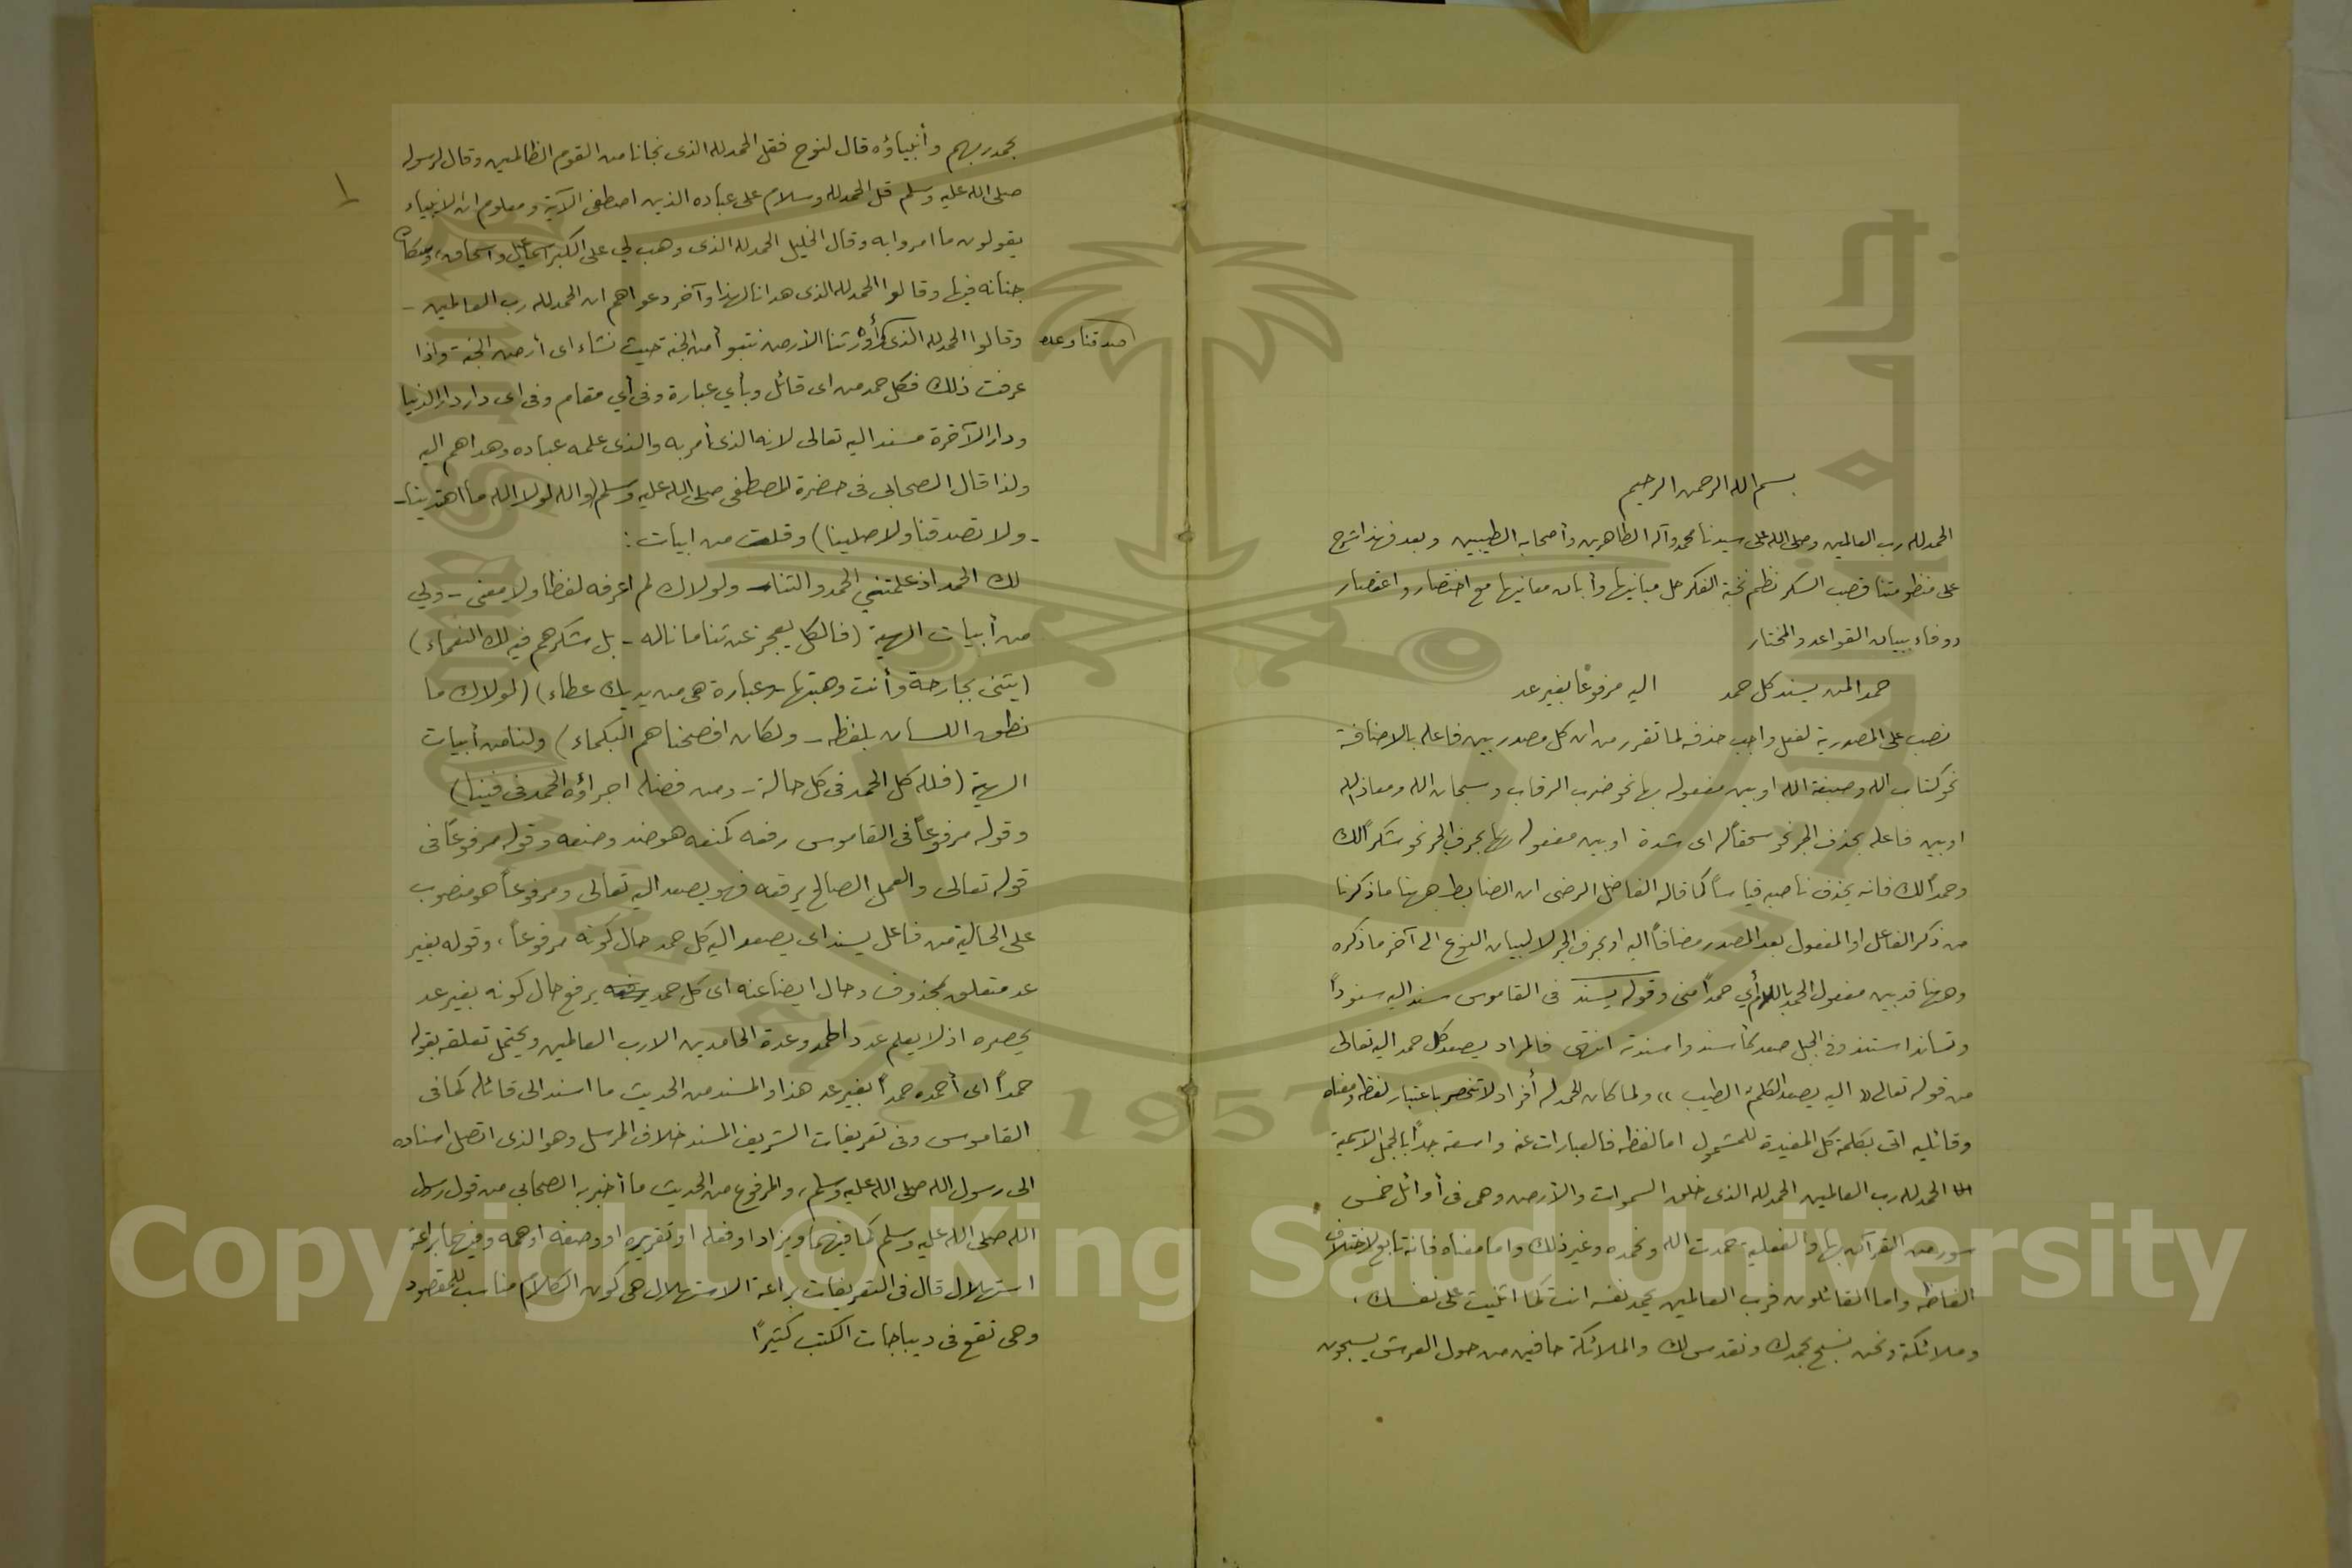 بسم الله الرحمن الرحيم
الحمد لله رب العالمين وصلى الله على سيدنا محمد وآله الطاهرين وأصحابه الطيبين وبعد فهذا شرح
على منظومتنا قصب السكر نظم نخبة الفكر حل مبانيها وأبان معانيها مع اختصار واعتصار
ووفاء ببيان القواعد والمختار
حمدا لمن يسند كل حمد اليه مرفوعًا بغير عد
نصب على المصدرية لفعل واجب حذفه لما تقرر من ان كل مصدر بين فاعله بالاضافة
نحو كتاب الله وصبغة الله او بين مفعوله بها نحو ضرب الرقاب وسبحان الله ومعاذ الله
او بين فاعله بحذف الجر نحو سحقًا له اى شدة او بين مفعوله بها بحرف الجر نحو شكرًا لك
وحمدًا لك فانه يحذف ناصبه قياساً كما قاله الفاضل الرضى ان الضابط ههنا ما ذكرنا
من ذكر الفاعل او المفعول بعد المصدر مضافاً اليه او بحرف الجر لا لبيان النوع الى آخر ما ذكره
وههنا قد بين مفعول الحمد باللام أي حمداً منى وقوله يسند فى القاموس سند اليه سنوداً
وتساند استند وفى الجبل صعد كأسند واسندته انتهى فالمراد يصعد كل حمد اليه تعالى
من قوله تعالى «اليه يصعد الكلم الطيب» ولما كان للحمد له أفراد لا تنحصر باعتبار لفظه ومعناه
وقائليه اتى بكلمة كل المفيدة للشمول اما لفظه فالعبارات عنه واسعة جداً بالجمل الاسمية
الحمد لله رب العالمين الحمد لله الذى خلق السموات والأرض وهى فى أوائل خمس
سور من القرآن بها والفعلية حمدت الله ونحمده وغير ذلك واما معناه فانه تابع لاختلاف
الفاظه واما القائلون فرب العالمين يحمد نفسه انت كما اثنيت على نفسك،
وملائكته ونحن نسبح بحمدك ونقدس لك والملائكة حافين من حول العرش يسبحون
بحمد ربهم وأنبياؤه قال لنوح فقل الحمد لله الذى نجانا من القوم الظالمين وقال لرسوله
صلى الله عليه وسلم قل الحمد لله وسلام على عباده الذين اصطفى الآية ومعلوم ان الانبياء
يقولون ما امروا به وقال الخليل الحمد لله الذى وهب لي على الكبر اسماعيل واسحاق، وسكان
جنانه فيها وقالوا الحمد لله الذى هدانا لهذا وآخر دعواهم ان الحمد لله رب العالمين -
صدقنا وعده
وقالوا الحمد لله الذى وأورثنا الأرض نتبوأ من الجنة حيث نشاء اى أرض الجنة واذا
عرفت ذلك فكل حمد من اى قائل وبأي عبارة وفى أي مقام وفى اى دار دار الدنيا
ودار الآخرة مسند اليه تعالى لانه الذى أمر به والذى علمه عباده وهداهم اليه
ولذا قال الصحابى فى حضرة المصطفى صلى الله عليه وسلم (والله لولا الله ما اهتدينا -
- ولا تصدقنا ولا صلينا) وقلت من ابيات:
لك الحمد اذ علمتني الحمد والثنا - ولولاك لم اعرفه لفظا ولا معنى - ولي
من أبيات الهية (فالكل يعجز عن ثنا ما ناله - بل شكرهم فيه لك النعماء)
(يثنى بجارحة وأنت وهبتها - وعبارة هى من يديك عطاء) (لولاك ما
نطق اللسان بلفظه - ولكان افصحنا هم البكماء) ولنا من أبيات
الهية (فلله كل الحمد فى كل حالة - ومن فضله اجراؤه الحمد فى فينا)
وقوله مرفوعاً فى القاموس رفعه كمنعه هو ضد وضعه وقوله مرفوعاً فى
قوله تعالى والعمل الصالح يرفعه فهو يصعد اليه تعالى ومرفوعاً هو منصوب
على الحالية من فاعل يسند اى يصعد اليه كل حمد حال كونه مرفوعاً، وقوله بغير
عد متعلق بمحذوف وحال ايضا عنه اى كل حمد يرفع حال كونه بغير عد
يحصره اذ لا يعلم عدد الحمد وعدة الحامدين الا رب العالمين ويحتمل تعلقه بقوله
حمداً اى أحمده حمداً بغير عد هذا والمسند من الحديث ما اسند الى قائله كما فى
القاموس وفى تعريفات الشريف المسند خلاف المرسل وهو الذى اتصل اسناده
الى رسول الله صلى الله عليه وسلم، والمرفوع من الحديث ما أخبر به الصحابى من قول رسول
الله صلى الله عليه وسلم كما فيهما ويزاد او فعله او تقريره او وصفه او همه وفيهما براعة
استهلال قال فى التعريفات براعة الاستهلال هى كون الكلام مناسب للمقصود
وهى تقع فى ديباجات الكتب كثيرًا
١
1957
Copyright © King Saud University